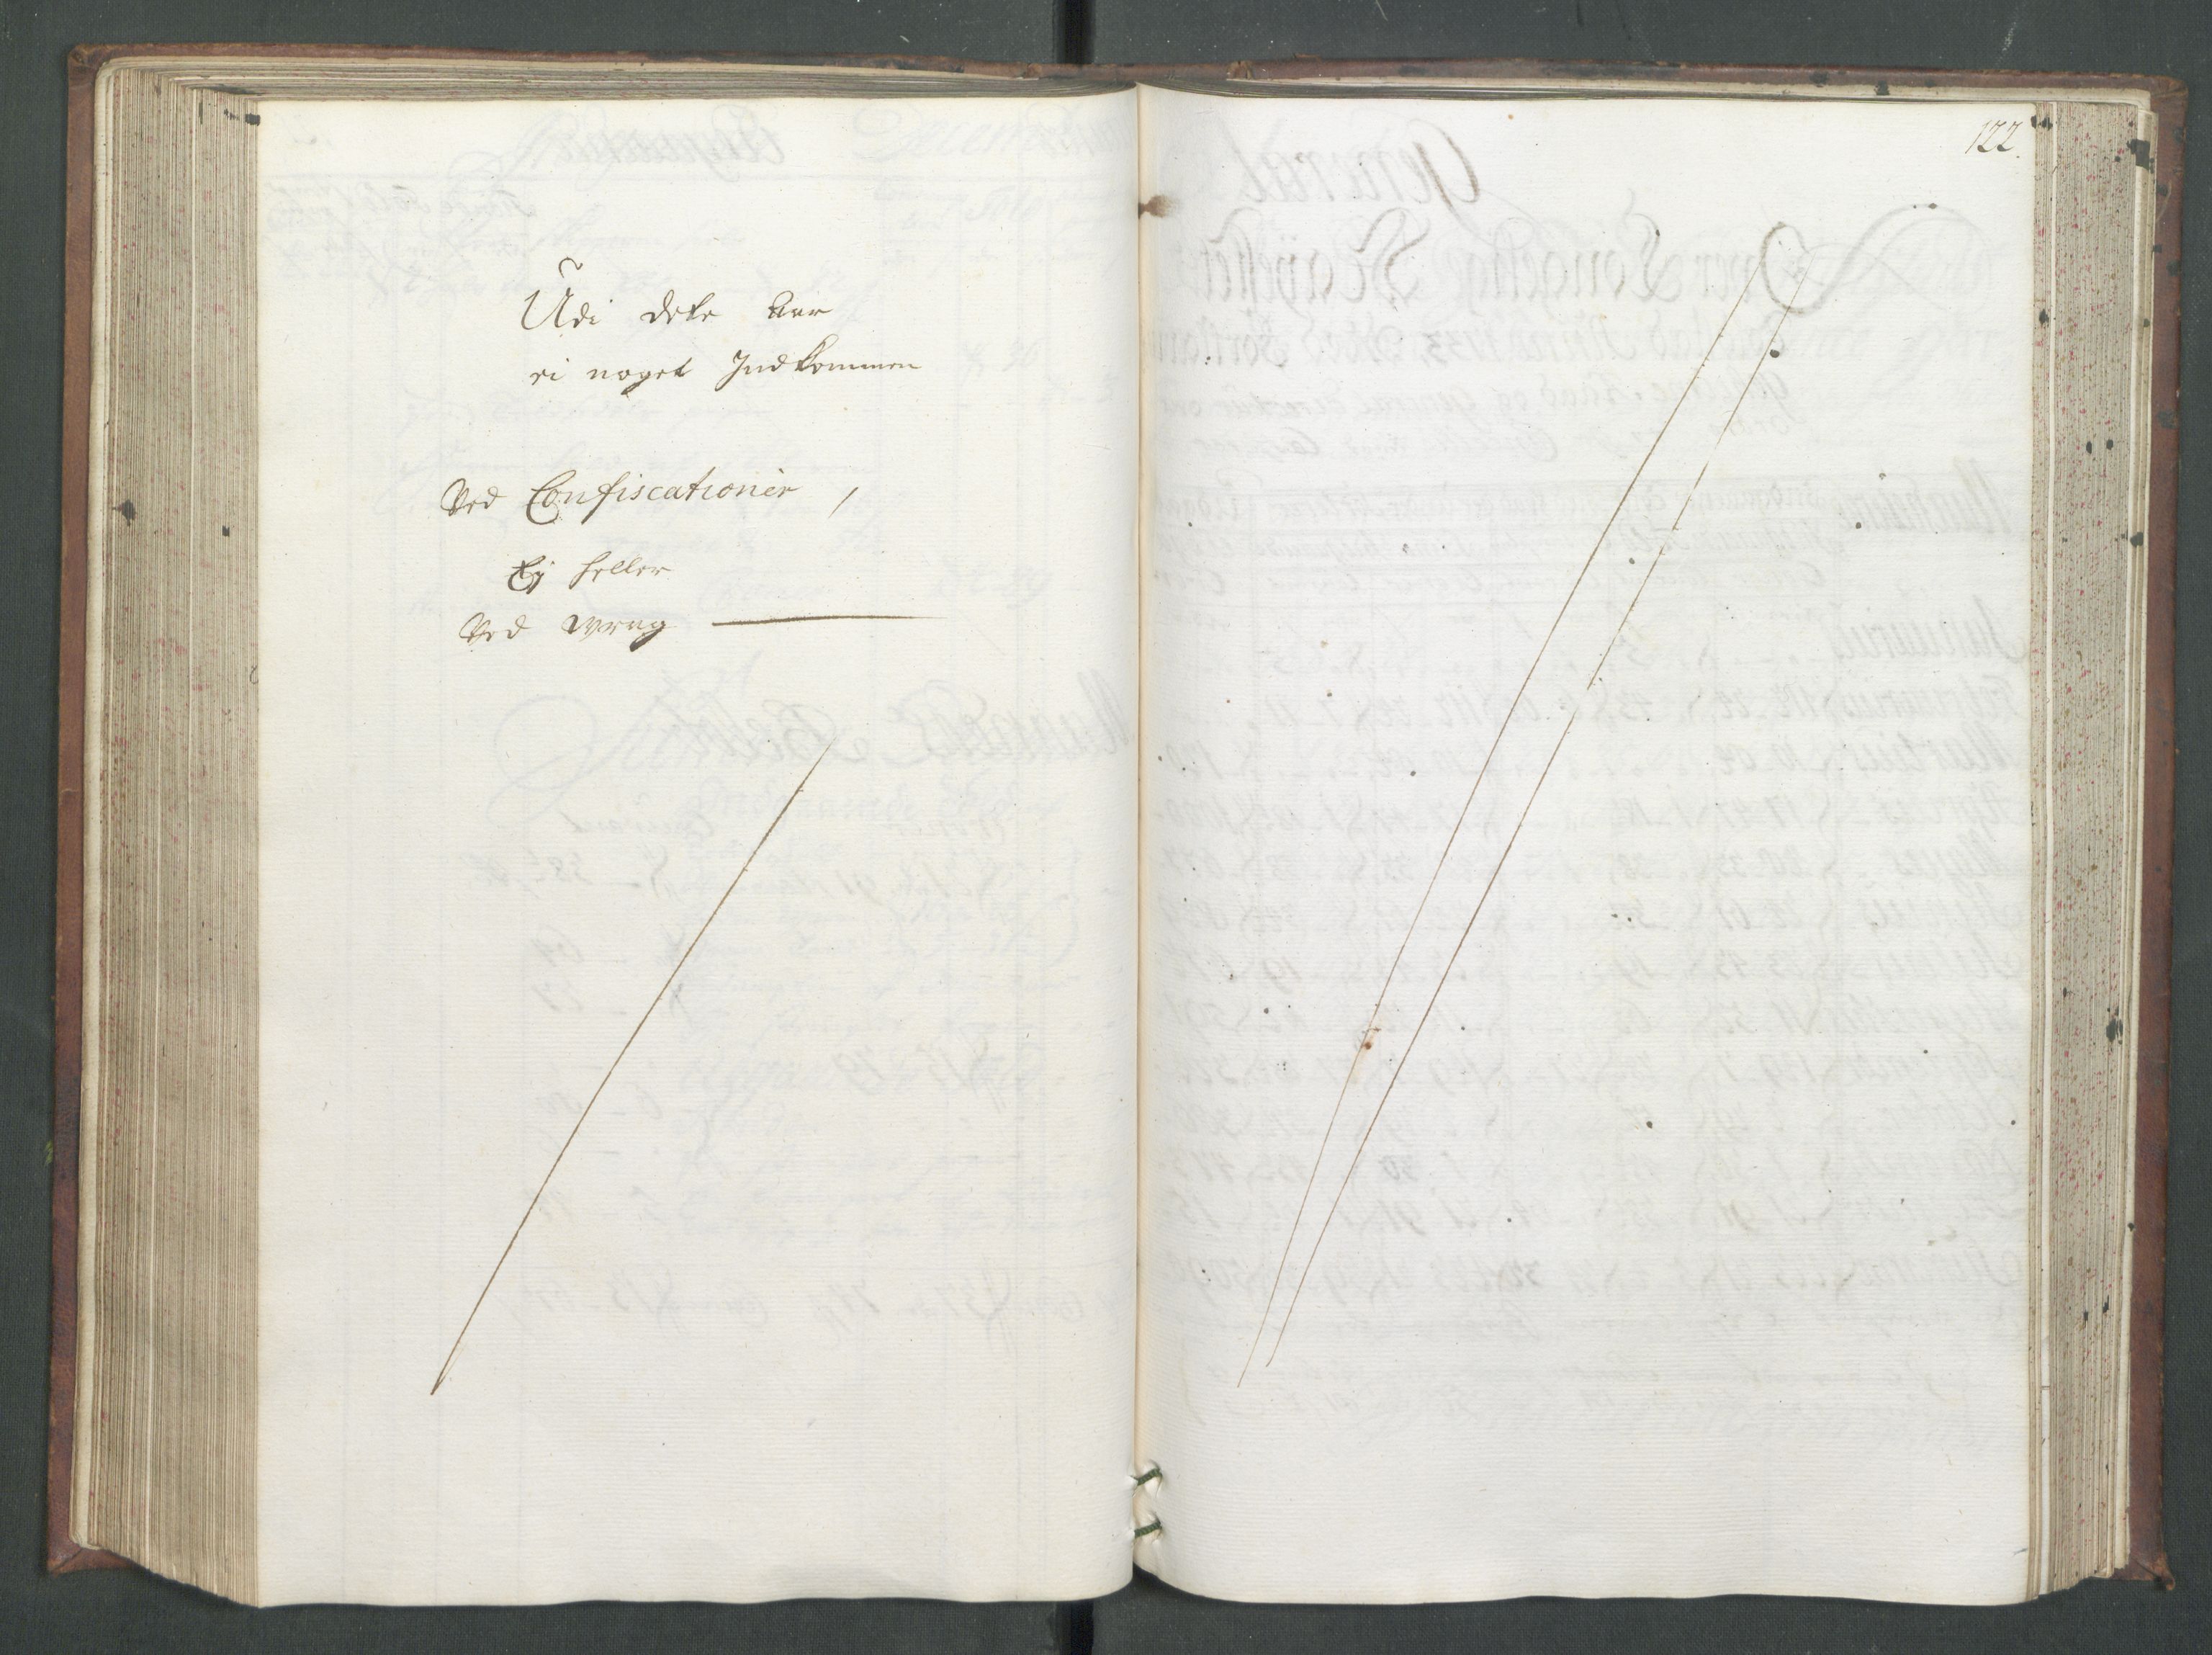 Udi dete Aar
ei noget Indkommen
Ved Confiscationer,
Ej heller
Ved wrag
122.